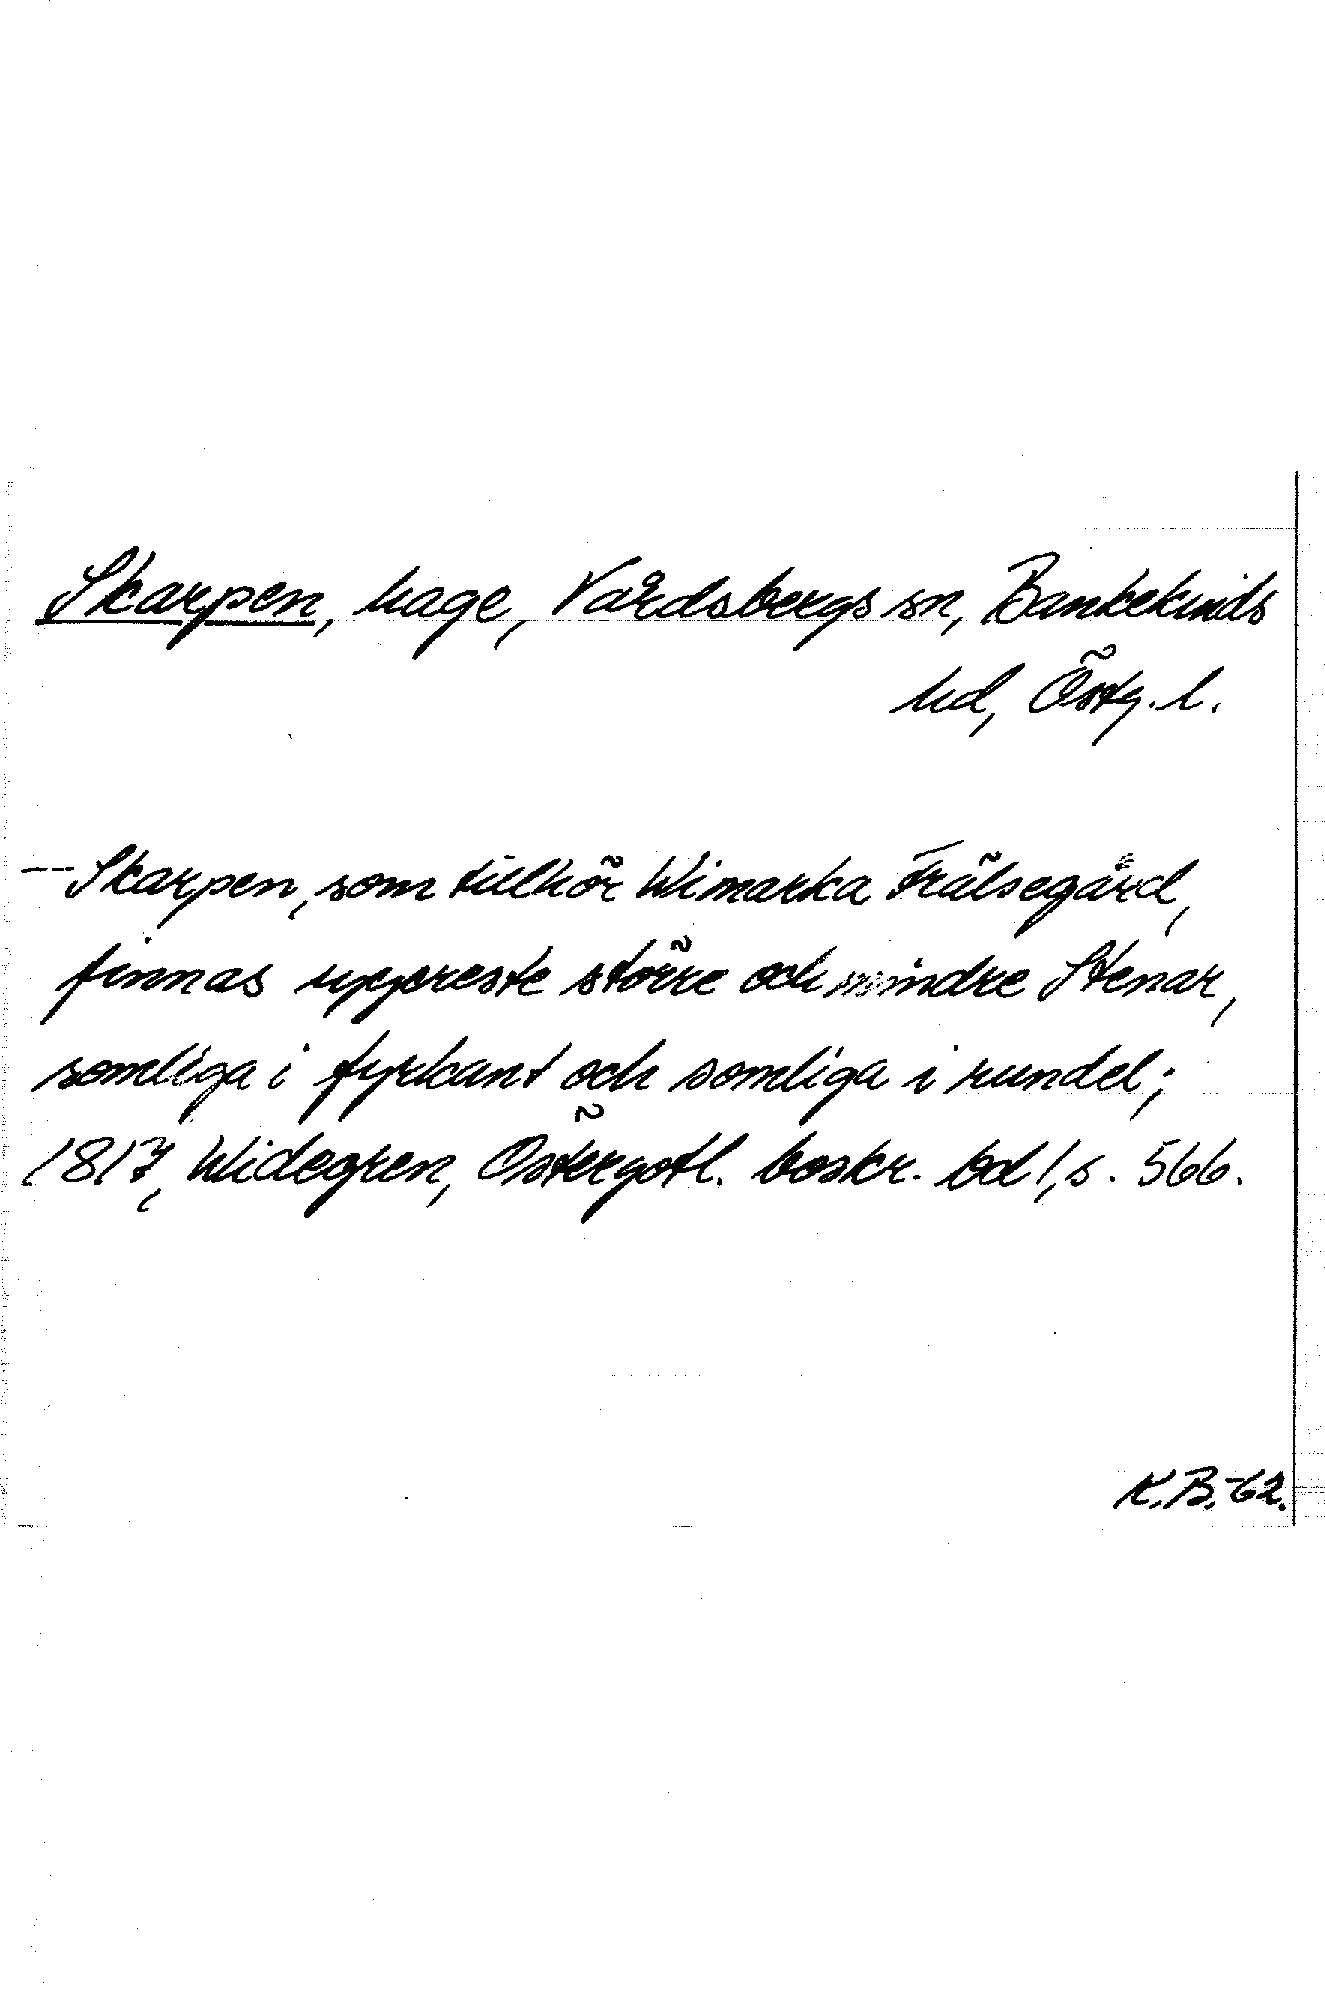 Skarpen, hage, Vårdsbergs sn, Bankekinds
hd, Östg. l.
-- Skarpen, som tillhör Wimarka Frälsegård,
finnas uppreste större och mindre Stenar,
somliga i fyrkant och somliga i rundel;
1817, Widegren, Östergötl. beskr. bd 1, s. 566.
K.B.-62.